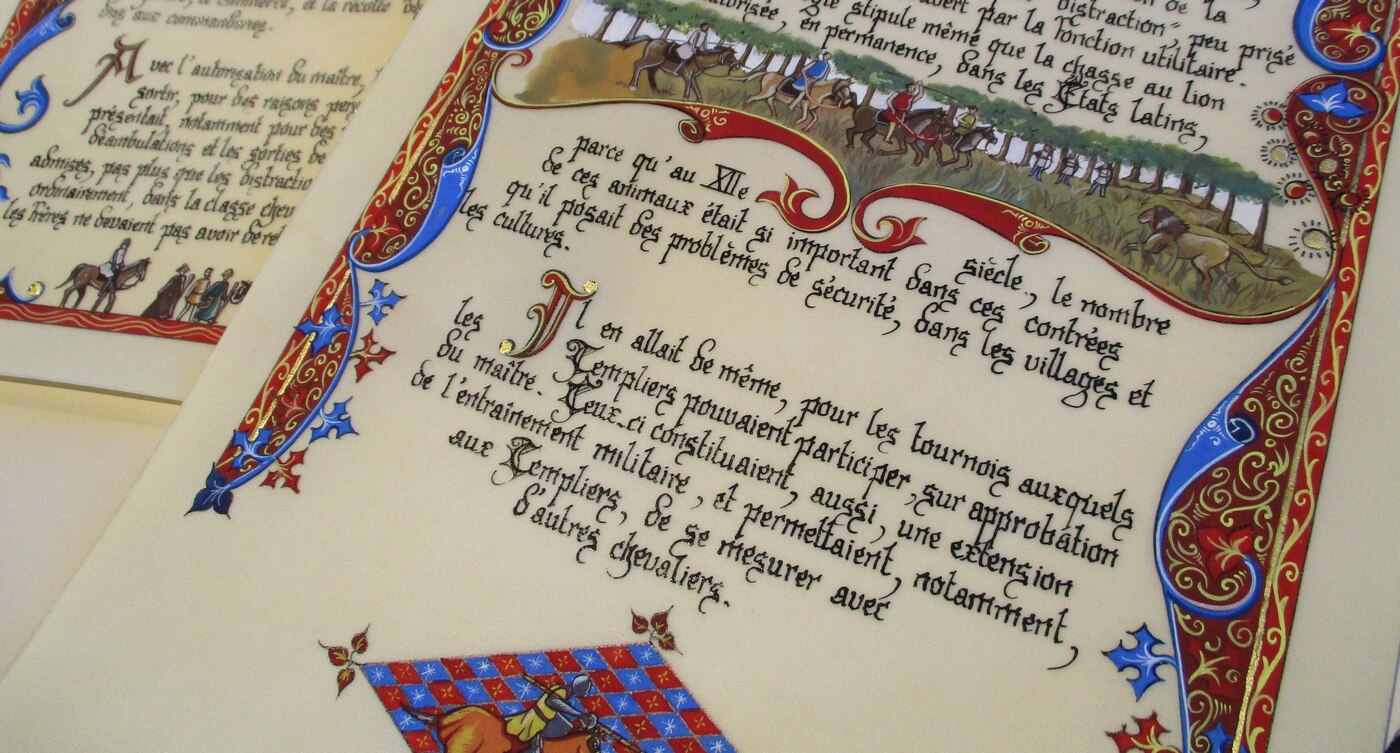 le commerce, et la récolte
aux commanderies.
Avec l'autorisation du maître,
sortir, pour des raisons
présentait, notamment pour des
déambulations et les sorties de
admises, pas plus que les
ordinairement, dans la classe
les frères ne devaient pas avoir de
de la
par la fonction "distraction", peu prisé
stipule même que la chasse au lion utilitaire.
en permanence, dans les États latins,
parce qu'au XIIe siècle, le nombre
de ces animaux était si important dans ces contrées
qu'il posait des problèmes de sécurité, dans les villages et
les cultures.
Il en allait de même, pour les tournois auxquels
les Templiers pouvaient participer, sur approbation
du maître. Ceux-ci constituaient, aussi, une extension
de l'entraînement militaire, et permettaient, notamment,
aux Templiers, de se mesurer avec
d'autres chevaliers.